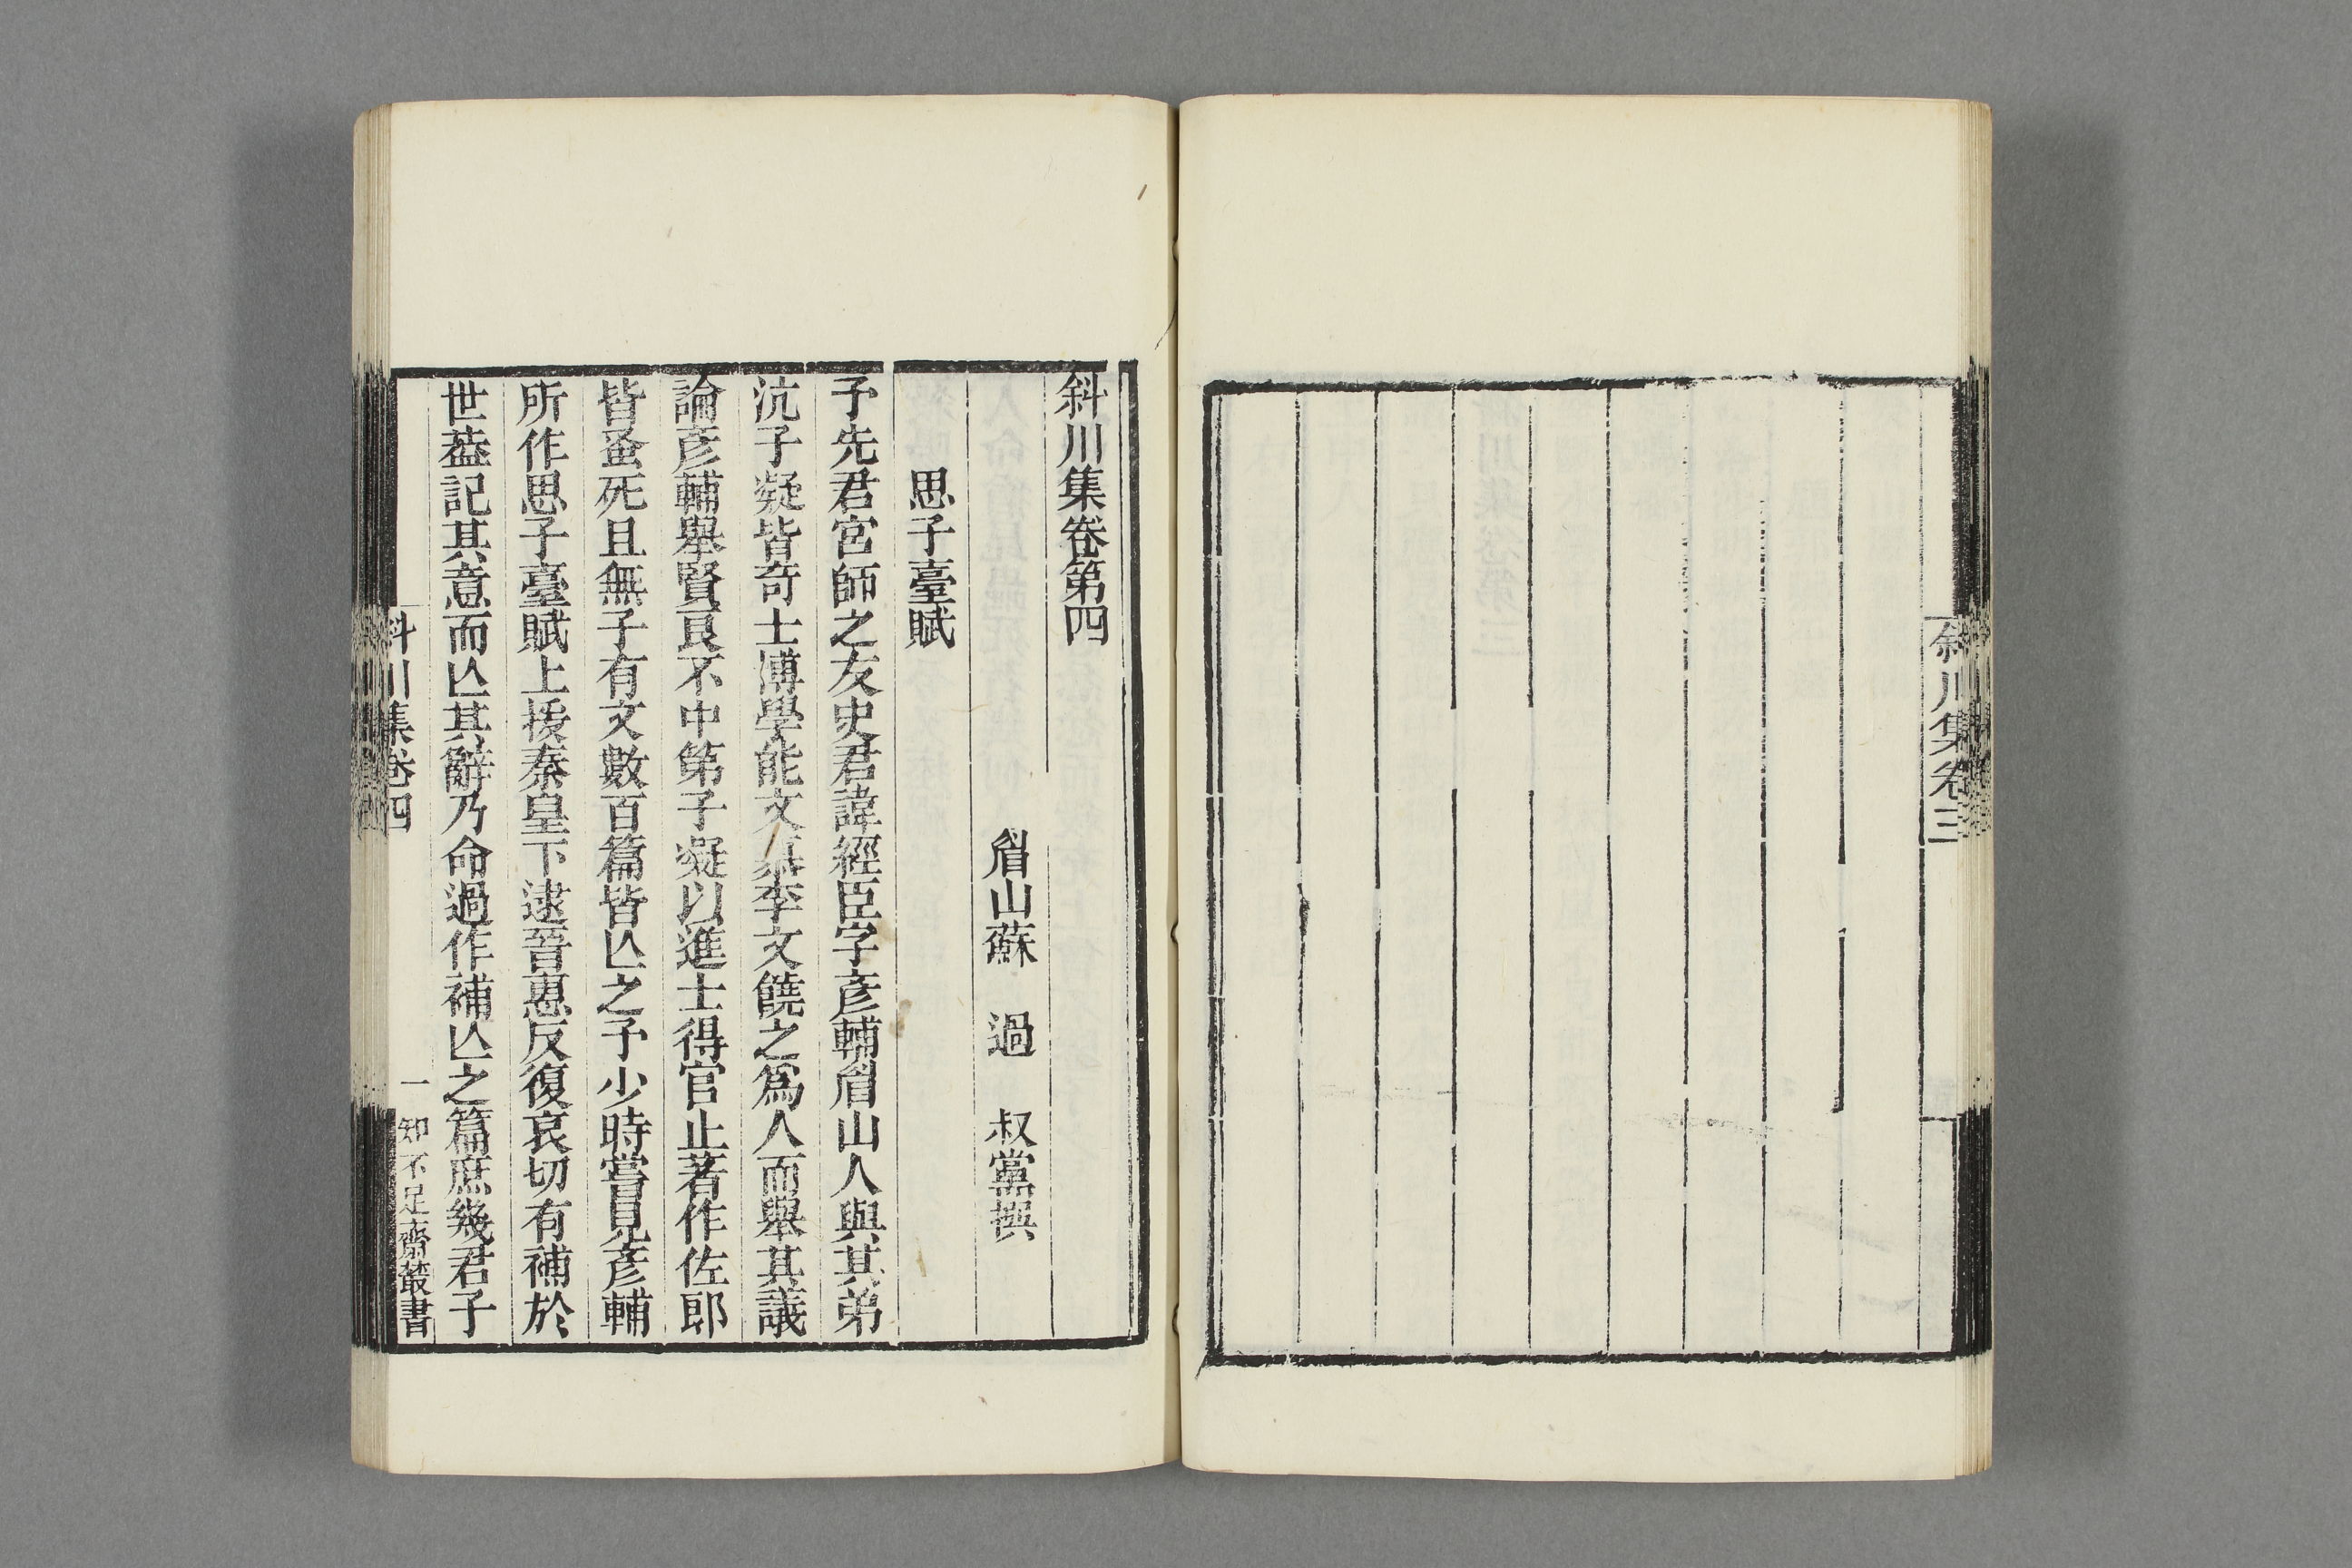 斜川集卷三
斜川集卷第四
眉山蘇　過　叔黨撰
思子臺賦
予先君宮師之友史君諱經臣字彥輔眉山人與其弟
沆子凝皆奇士博學能文慕李文饒之爲人而舉其議
論彥輔舉賢良不中第子凝以進士得官止著作佐郎
皆蚤死且無子有文數百篇皆亾之予少時嘗見彥輔
所作思子臺賦上援秦皇下逮晉惠反復哀切有補於
世葢記其意而亾其辭乃命過作補亾之篇庶幾君子
斜川集卷四
一
知不足齋叢書